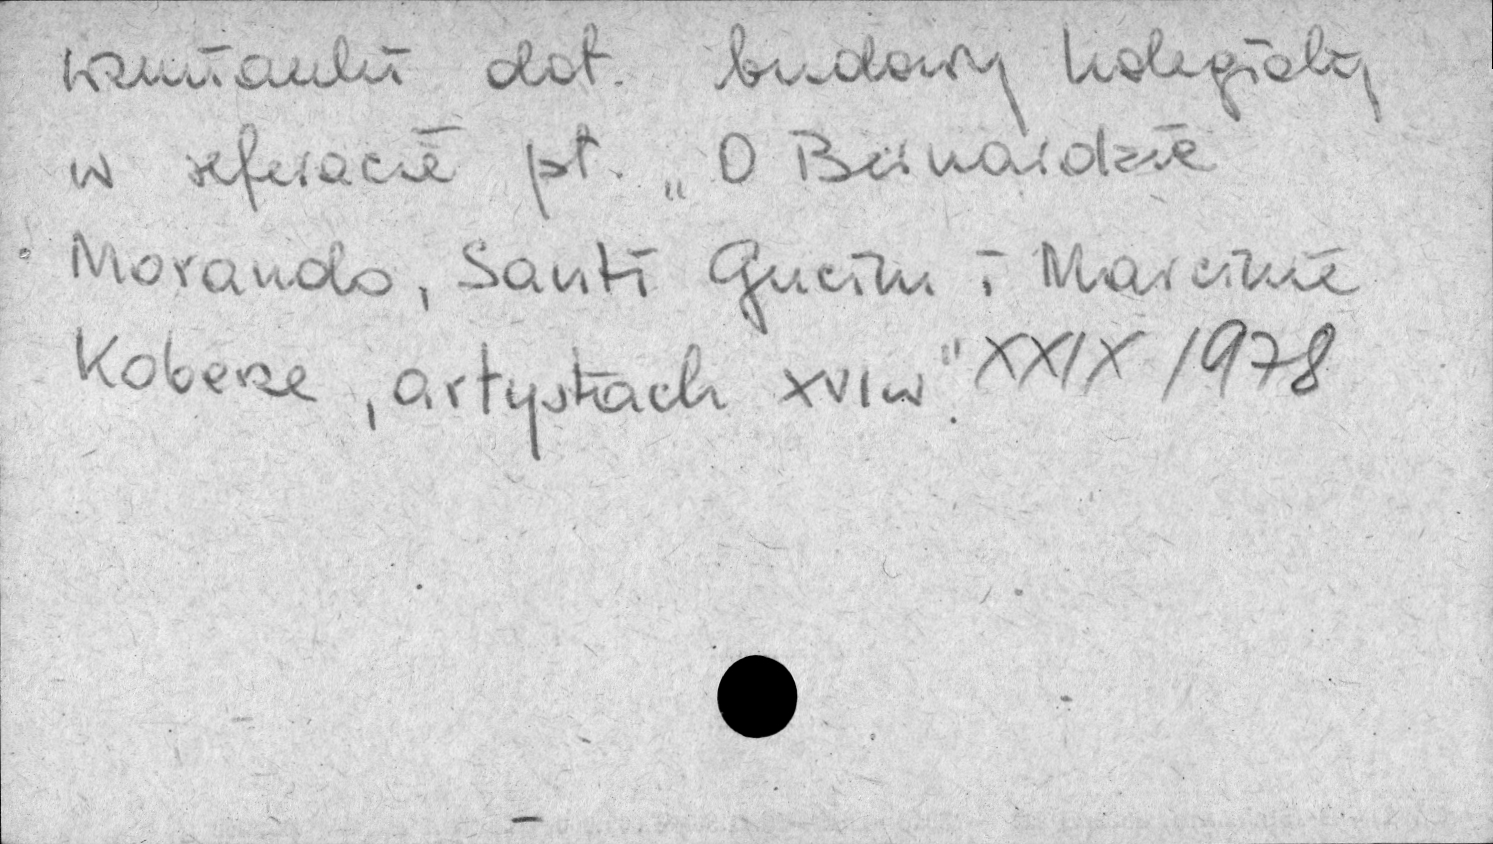 wzmianki dot. budowy kolegiaty
w referacie pt. „O Bernardzie
Morando, Santi Gucim i Marcinie
Koberze, artystach XVI w." XXIX/1978